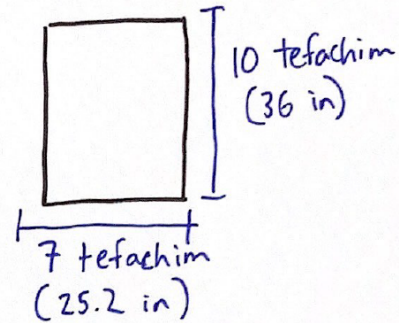 10 tefachim
(36 in)
7 tefachim
(25.2 in)